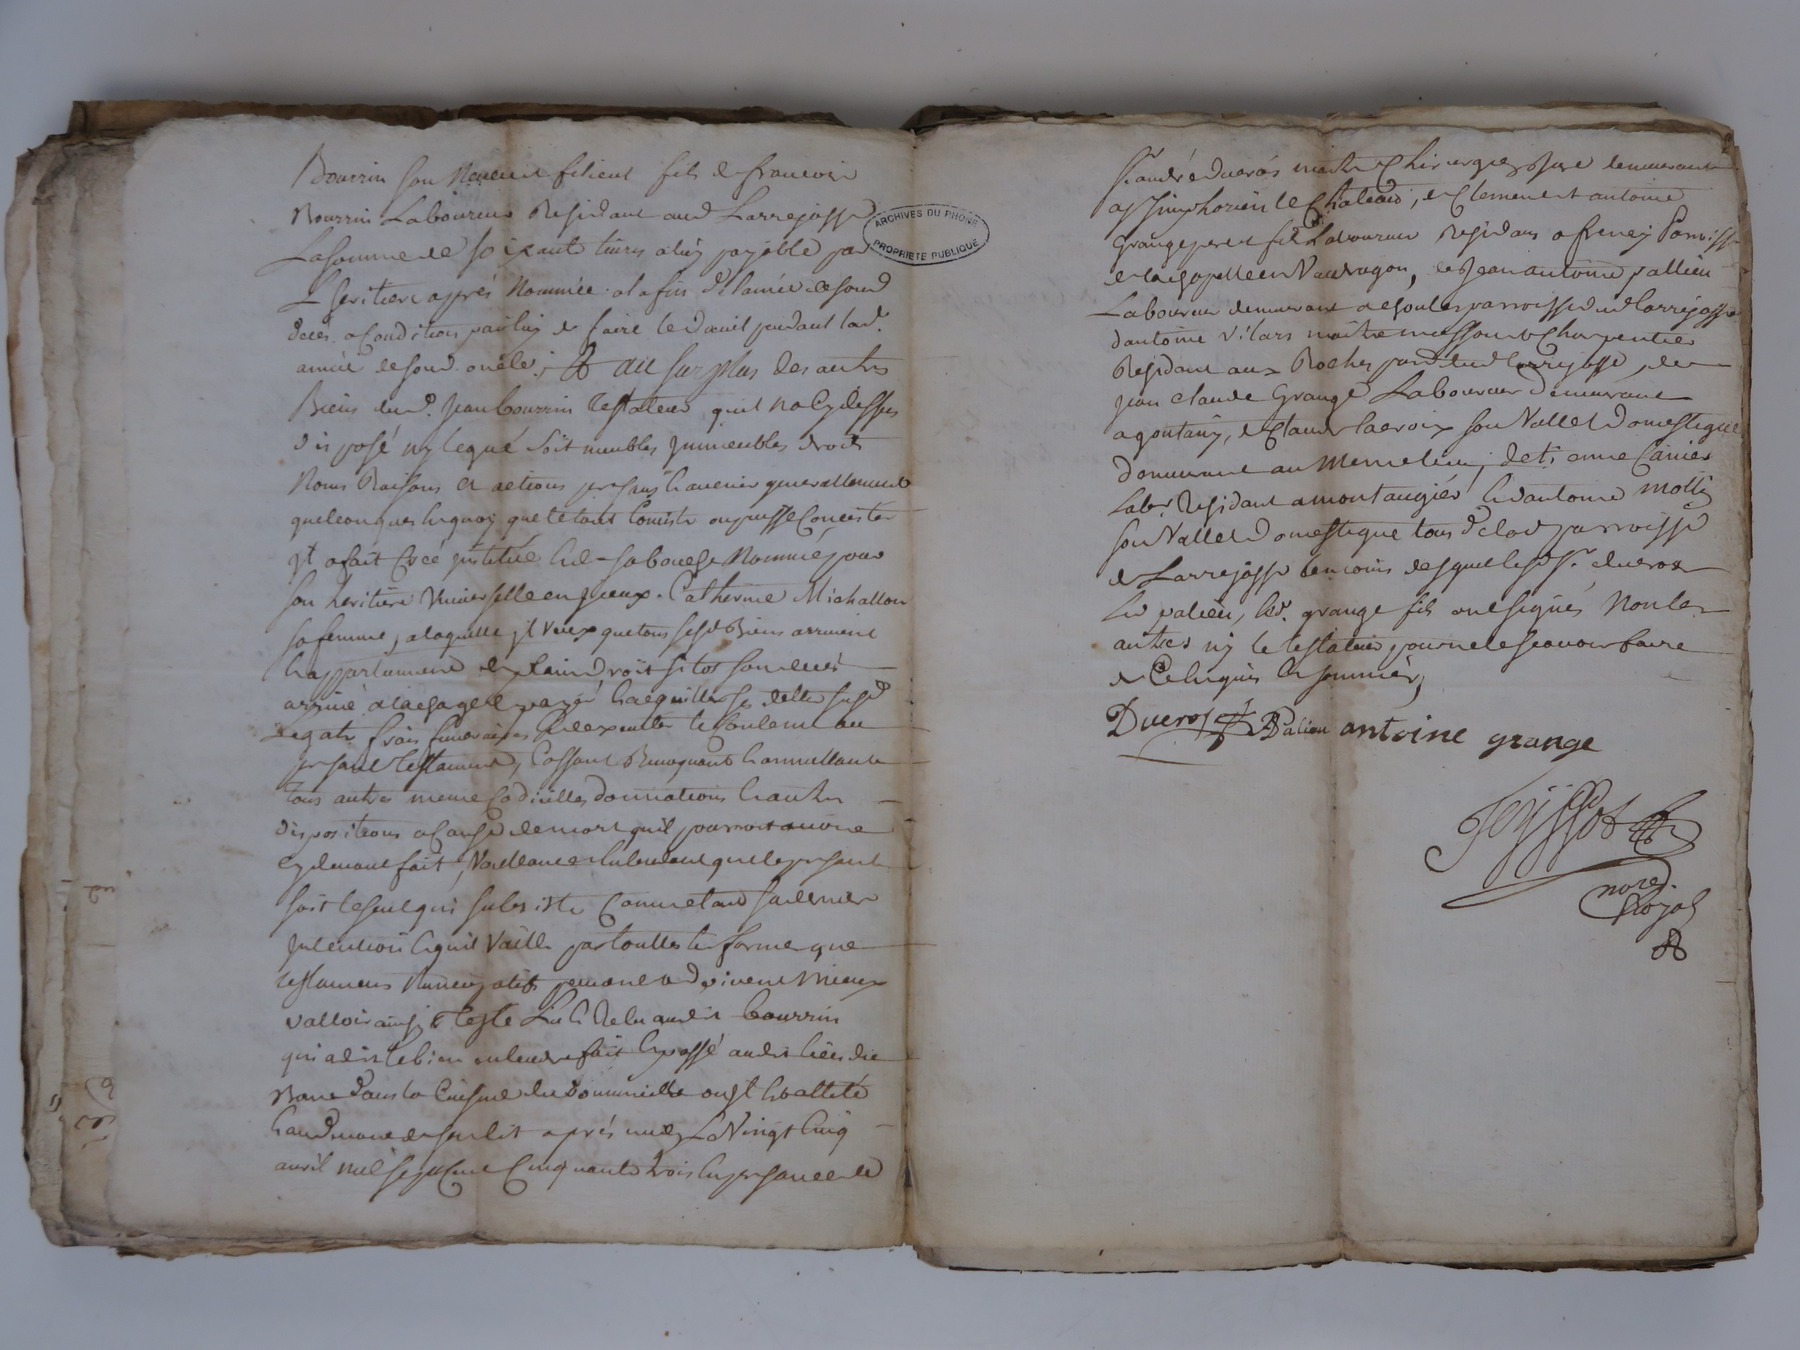 Bourrin son Neveu et filieul fils de francois
Bourrin Laboureur Residant aud Larrejasse
La somme de soixante livres a luy payable par
L'heritiere aprés Nommée a la fin de l'année de sond
deces a Condition par luy de faire le deuil pendant lad.
année de sond oncle; & au surplus des autres
Biens dud. Jean bourrin testateur quil na Cy dessus
disposé ny legué soit meubles Immeubles droits
Noms Raisons et actions presans & avenir generallement
quelconques En quoy que le tout Consiste ou puisse Concister
Il a fait Créé institué & de sa bouche Nommé pour
son heritiere Universelle Catherine Michallon
sa femme, a laquelle il veux que tous sesd Biens arrivent
& appartiennent de plain droit sitot son decés
arrivé a la charge de payer & acquitter ses dettes susd
Legats frais funeraires & d'executer le Contenu au
presant testament, Cassant Revoquant & annullant
tous autres meme Codicilles donnations & autres
dispositions a Cause de mort quil pourroit avoir
cy devant fait, Voullant & entendant que le presant
soit le seul qui subsiste Comme etant sa derniere
Intention & quil Vaille par touttes les formes que
testamens Nuncupatifs peuvent & doivent mieux
valloir ainsi testé Lu & Relu audit bourrin
qui a dit le bien entendre fait & passé audit lieu de
dans la Cuisine du Domicille ou il est allité
de son lit aprés midy Le Vingt Cinq
avril mil sept Cent Cinquante trois En presance de
Sr. andré ducros maitre Chirurgien Juré demeurant
a St simphorien le Chateau, de Clement et antoine
Grange pere et fils Laboureurs Residans a freney Parroisse
de la chapelle en Vaudragon, de Jean antoine pallieu
Laboureur demeurant parroisse dud Larrejasse
d'antoine Vilars maitre masson & Charpentier
Residant aux Roches parr. dud Larrejasse, de
Jean claude Grange Laboureur demeurant
a gontany, de Claude Lacroix son Vallet Domestique
demeurant au Meme lieu, d'etienne Carrier
Labr. Residant a montaugier & d'antoine
son Vallet Domestique tous de lad parroisse
de Larrejasse temoins desquels led Sr. ducros
led palieu, led. grange fils ont signés Non les
autres ny le testateur pour ne le scavoir faire
de Ce Enquis & sommés,
Ducros Palieu antoine grange
Teyssot
nore.
Royal
ARCHIVES DU RHONE
PROPRIETE PUBLIQUE